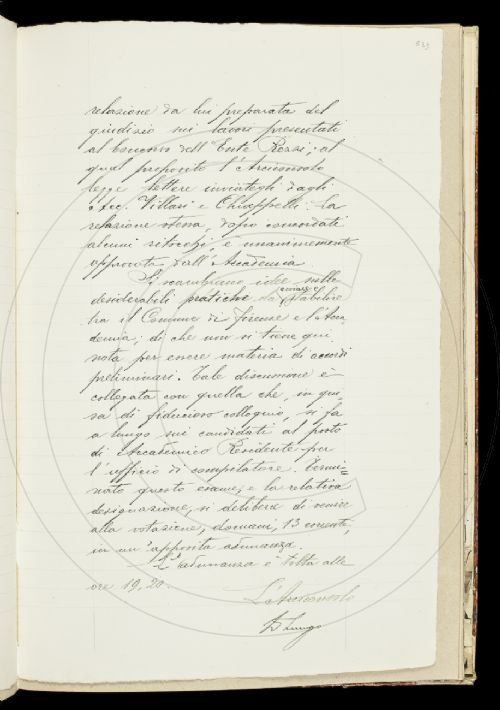 323
relazione da lui preparata del
giudizio sui lavori presentati
al Concorso dell'Ente Rossi; al
qual proposito l'Arciconsolo
legge lettere inviategli dagli
Acc. Villari e Chiappelli. La
relazione stessa, dopo concordati
alcuni ritocchi, è unanimemente
approvata dall'Accademia.
Si scambiano idee sulle
desiderabili pratiche da stabilire
tra il Comune di Firenze e l'Acca-
demia; di che non si tiene qui
nota per essere materia di accordi
preliminari. Tale discussione è
collegata con quella che, in gui-
sa di fiducioso colloquio, si fa
a lungo sui candidati al posto
di Accademico Residente per
l'ufficio di compilatore. Termi-
nato questo esame, e la relativa
designazione, si delibera di venire
alla votazione, domani, 13 corrente,
in un'apposita adunanza.
L'adunanza è tolta alle
ore 19,20.
L'Arciconsolo